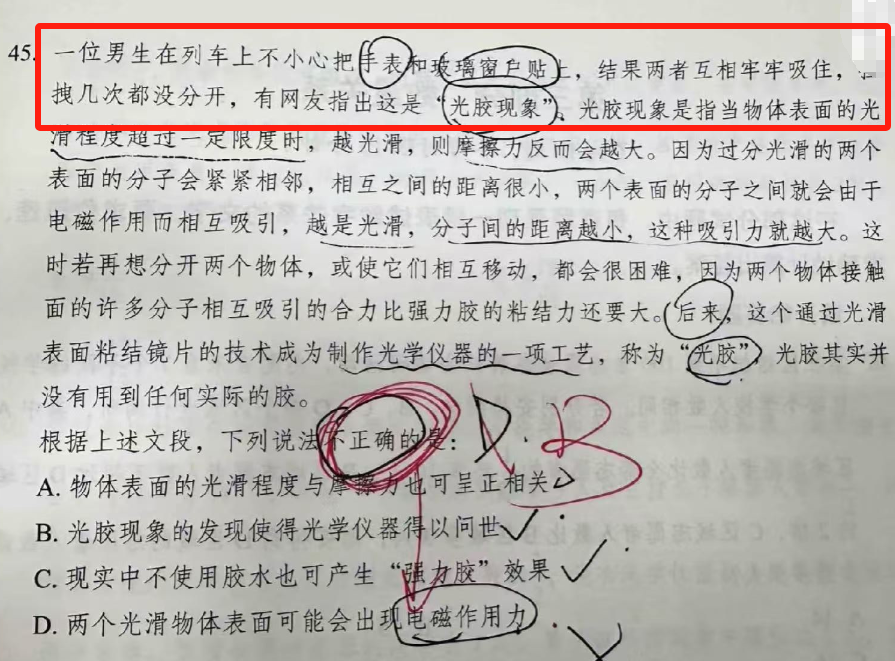 45. 一位男生在列车上不小心把手表和玻璃窗户贴上，结果两者互相牢牢吸住，
拽几次都没分开，有网友指出这是“光胶现象”。光胶现象是指当物体表面的光
滑程度超过一定限度时，越光滑，则摩擦力反而会越大。因为过分光滑的两个
表面的分子会紧紧相邻，相互之间的距离很小，两个表面的分子之间就会由于
电磁作用而相互吸引，越是光滑，分子间的距离越小，这种吸引力就越大。这
时若再想分开两个物体，或使它们相互移动，都会很困难，因为两个物体接触
面的许多分子相互吸引的合力比强力胶的粘结力还要大。后来，这个通过光滑
表面粘结镜片的技术成为制作光学仪器的一项工艺，称为“光胶”，光胶其实并
没有用到任何实际的胶。
根据上述文段，下列说法不正确的是： D. B
A. 物体表面的光滑程度与摩擦力也可呈正相关
B. 光胶现象的发现使得光学仪器得以问世
C. 现实中不使用胶水也可产生“强力胶”效果
D. 两个光滑物体表面可能会出现电磁作用力